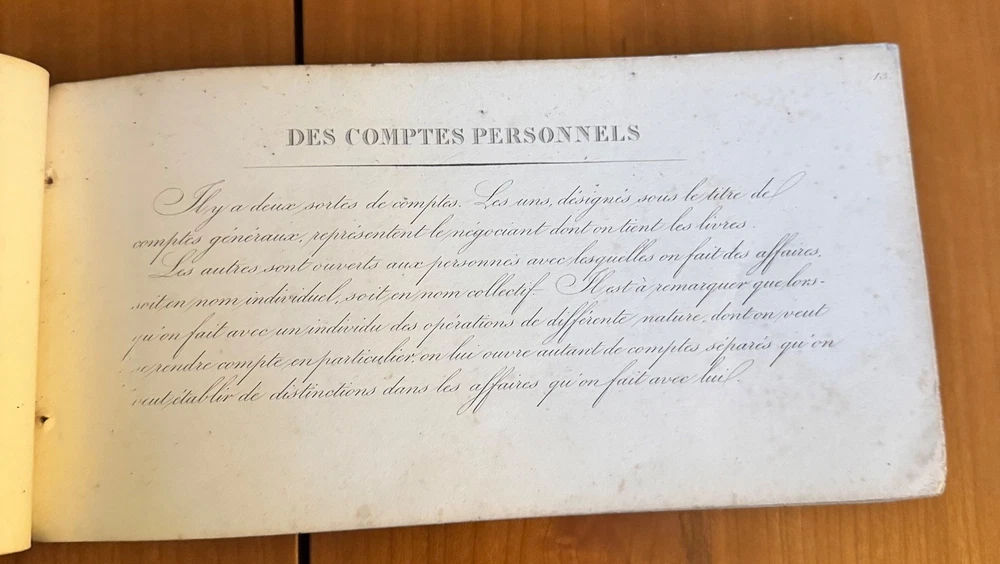 13
DES COMPTES PERSONNELS
Il y a deux sortes de comptes. Les uns, désignés sous le titre de
comptes généraux, représentent le négociant dont on tient les livres.
Les autres sont ouverts aux personnes avec lesquelles on fait des affaires,
soit en nom individuel, soit en nom collectif. Il est à remarquer que lors-
qu'on fait avec un individu des opérations de différente nature, dont on veut
se rendre compte en particulier, on lui ouvre autant de comptes séparés qu'on
veut établir de distinctions dans les affaires qu'on fait avec lui.